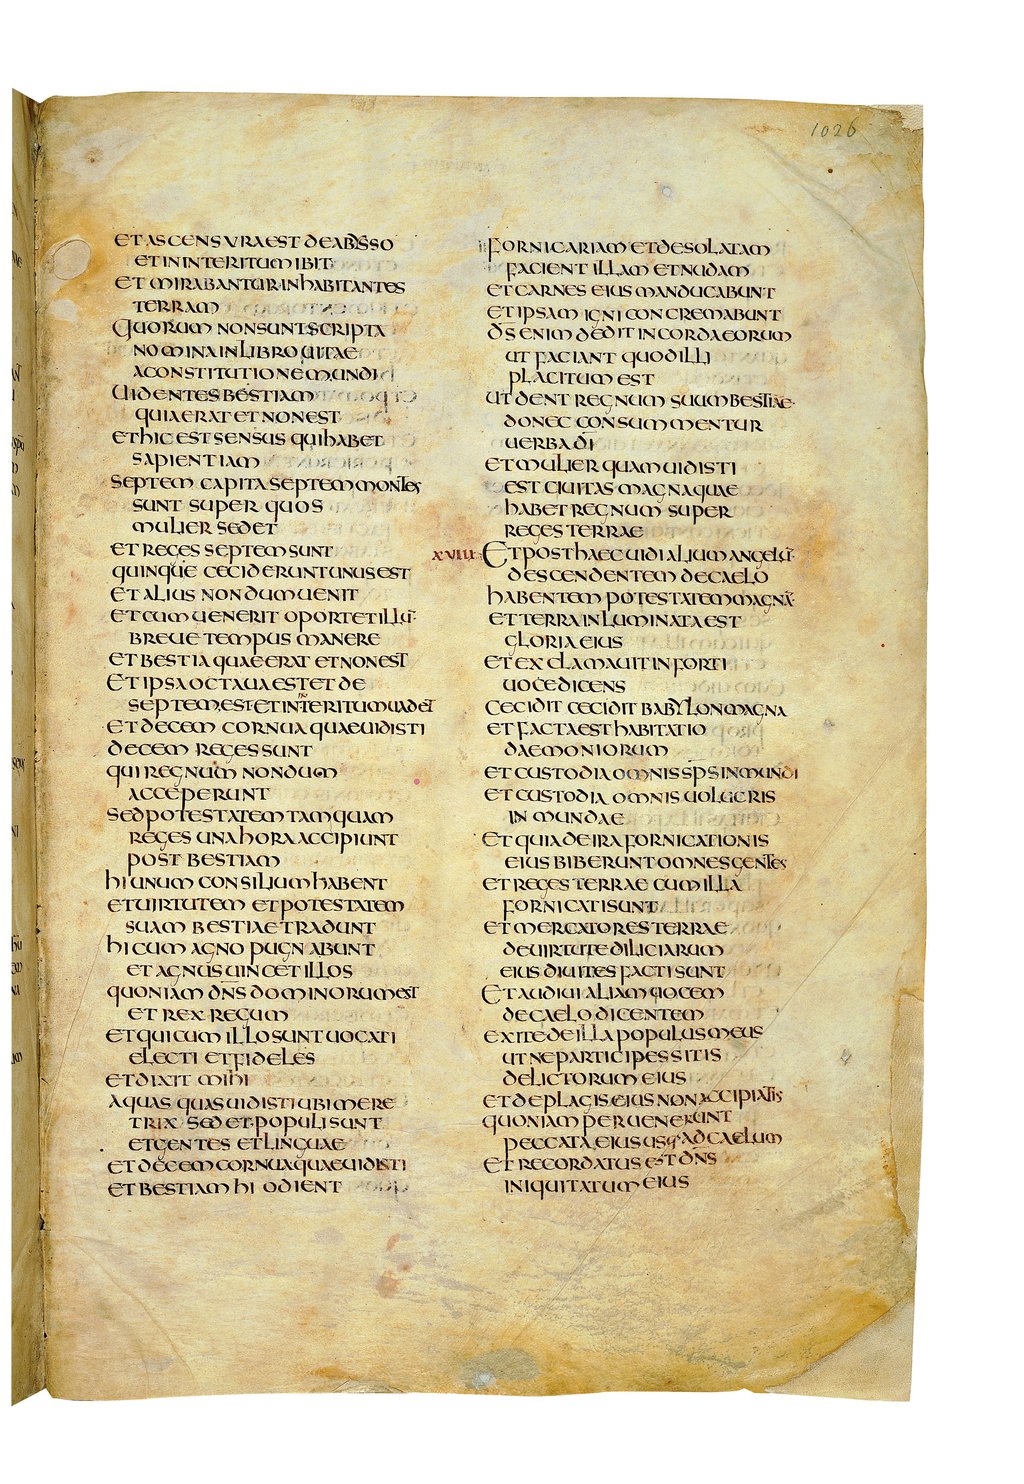 1026
ET ASCENSURA EST DE ABISSO
ET IN INTERITUM IBIT
ET MIRABANTUR INHABITANTES
TERRAM
QUORUM NON SUNT SCRIPTA
NOMINA IN LIBRO UITAE
A CONSTITUTIONE MUNDI
UIDENTES BESTIAM
QUIA ERAT ET NON EST
ET HIC EST SENSUS QUI HABET
SAPIENTIAM
SEPTEM CAPITA SEPTEM MONTES
SUNT SUPER QUOS
MULIER SEDET
ET REGES SEPTEM SUNT
QUINQUE CECIDERUNT UNUS EST
ET ALIUS NONDUM UENIT
ET CUM UENERIT OPORTET ILLŪ
BREUE TEMPUS MANERE
ET BESTIA QUAE ERAT ET NON EST
ET IPSA OCTAUA EST ET DE
SEPTEM EST ET IN INTERITUM UADET
ET DECEM CORNUA QUAE UIDISTI
DECEM REGES SUNT
QUI REGNUM NONDUM
ACCEPERUNT
SED POTESTATEM TAMQUAM
REGES UNA HORA ACCIPIUNT
POST BESTIAM
HI UNUM CONSILIUM HABENT
ET UIRTUTEM ET POTESTATEM
SUAM BESTIAE TRADUNT
HI CUM AGNO PUGNABUNT
ET AGNUS UINCET ILLOS
QUONIAM DN̄S DOMINORUM EST
ET REX REGUM
ET QUI CUM ILLO SUNT UOCATI
ELECTI ET FIDELES
ET DIXIT MIHI
AQUAS QUAS UIDISTI UBI MERE
TRIX SEDET POPULI SUNT
ET GENTES ET LINGUAE
ET DECEM CORNUA QUAE UIDISTI
ET BESTIAM HI ODIENT
FORNICARIAM ET DESOLATAM
FACIENT ILLAM ET NUDAM
ET CARNES EIUS MANDUCABUNT
ET IPSAM IGNI CONCREMABUNT
DS̄ ENIM DEDIT IN CORDA EORUM
UT FACIANT QUOD ILLI
PLACITUM EST
UT DENT REGNUM SUUM BESTIAE
DONEC CONSUMMENTUR
UERBA DĪ
ET MULIER QUAM UIDISTI
EST CIUITAS MAGNA QUAE
HABET REGNUM SUPER
REGES TERRAE
XVIII ET POST HAEC UIDI ALIUM ANGELŪ
DESCENDENTEM DE CAELO
HABENTEM POTESTATEM MAGNĀ
ET TERRA INLUMINATA EST
GLORIA EIUS
ET EXCLAMAUIT IN FORTI
UOCE DICENS
CECIDIT CECIDIT BABYLON MAGNA
ET FACTA EST HABITATIO
DAEMONIORUM
ET CUSTODIA OMNIS SPS̄ INMUNDI
ET CUSTODIA OMNIS UOLUCRIS
INMUNDAE
ET QUIA DE IRA FORNICATIONIS
EIUS BIBERUNT OMNES GENTES
ET REGES TERRAE CUM ILLA
FORNICATI SUNT
ET MERCATORES TERRAE
DE UIRTUTE DILICIARUM
EIUS DIUITES FACTI SUNT
ET AUDIUI ALIAM UOCEM
DE CAELO DICENTEM
EXITE DE ILLA POPULUS MEUS
UT NE PARTICIPES SITIS
DELICTORUM EIUS
ET DE PLAGIS EIUS NON ACCIPIATIS
QUONIAM PERUENERUNT
PECCATA EIUS USQ· AD CAELUM
ET RECORDATUS EST DN̄S
INIQUITATUM EIUS